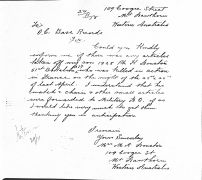 109 Coogee Street
Mt Hawthorn
Western Australia
To
O.C. Base Records
Sir
Could you Kindly
inform me if there was any articles
taken off my son 1925 Pte H Senator
51st Battalion, who was killed in action
in France on the night of the 24th 25th
of last April I understand that his
watch & chain & other small articles
were forwarded to Military H.Q. if so
I would like very much to get them
thanking you in anticipation
I remain
Yours Sincerely
Mrs M A
109 Coogee St
Mt Hawthorn
Western Australia